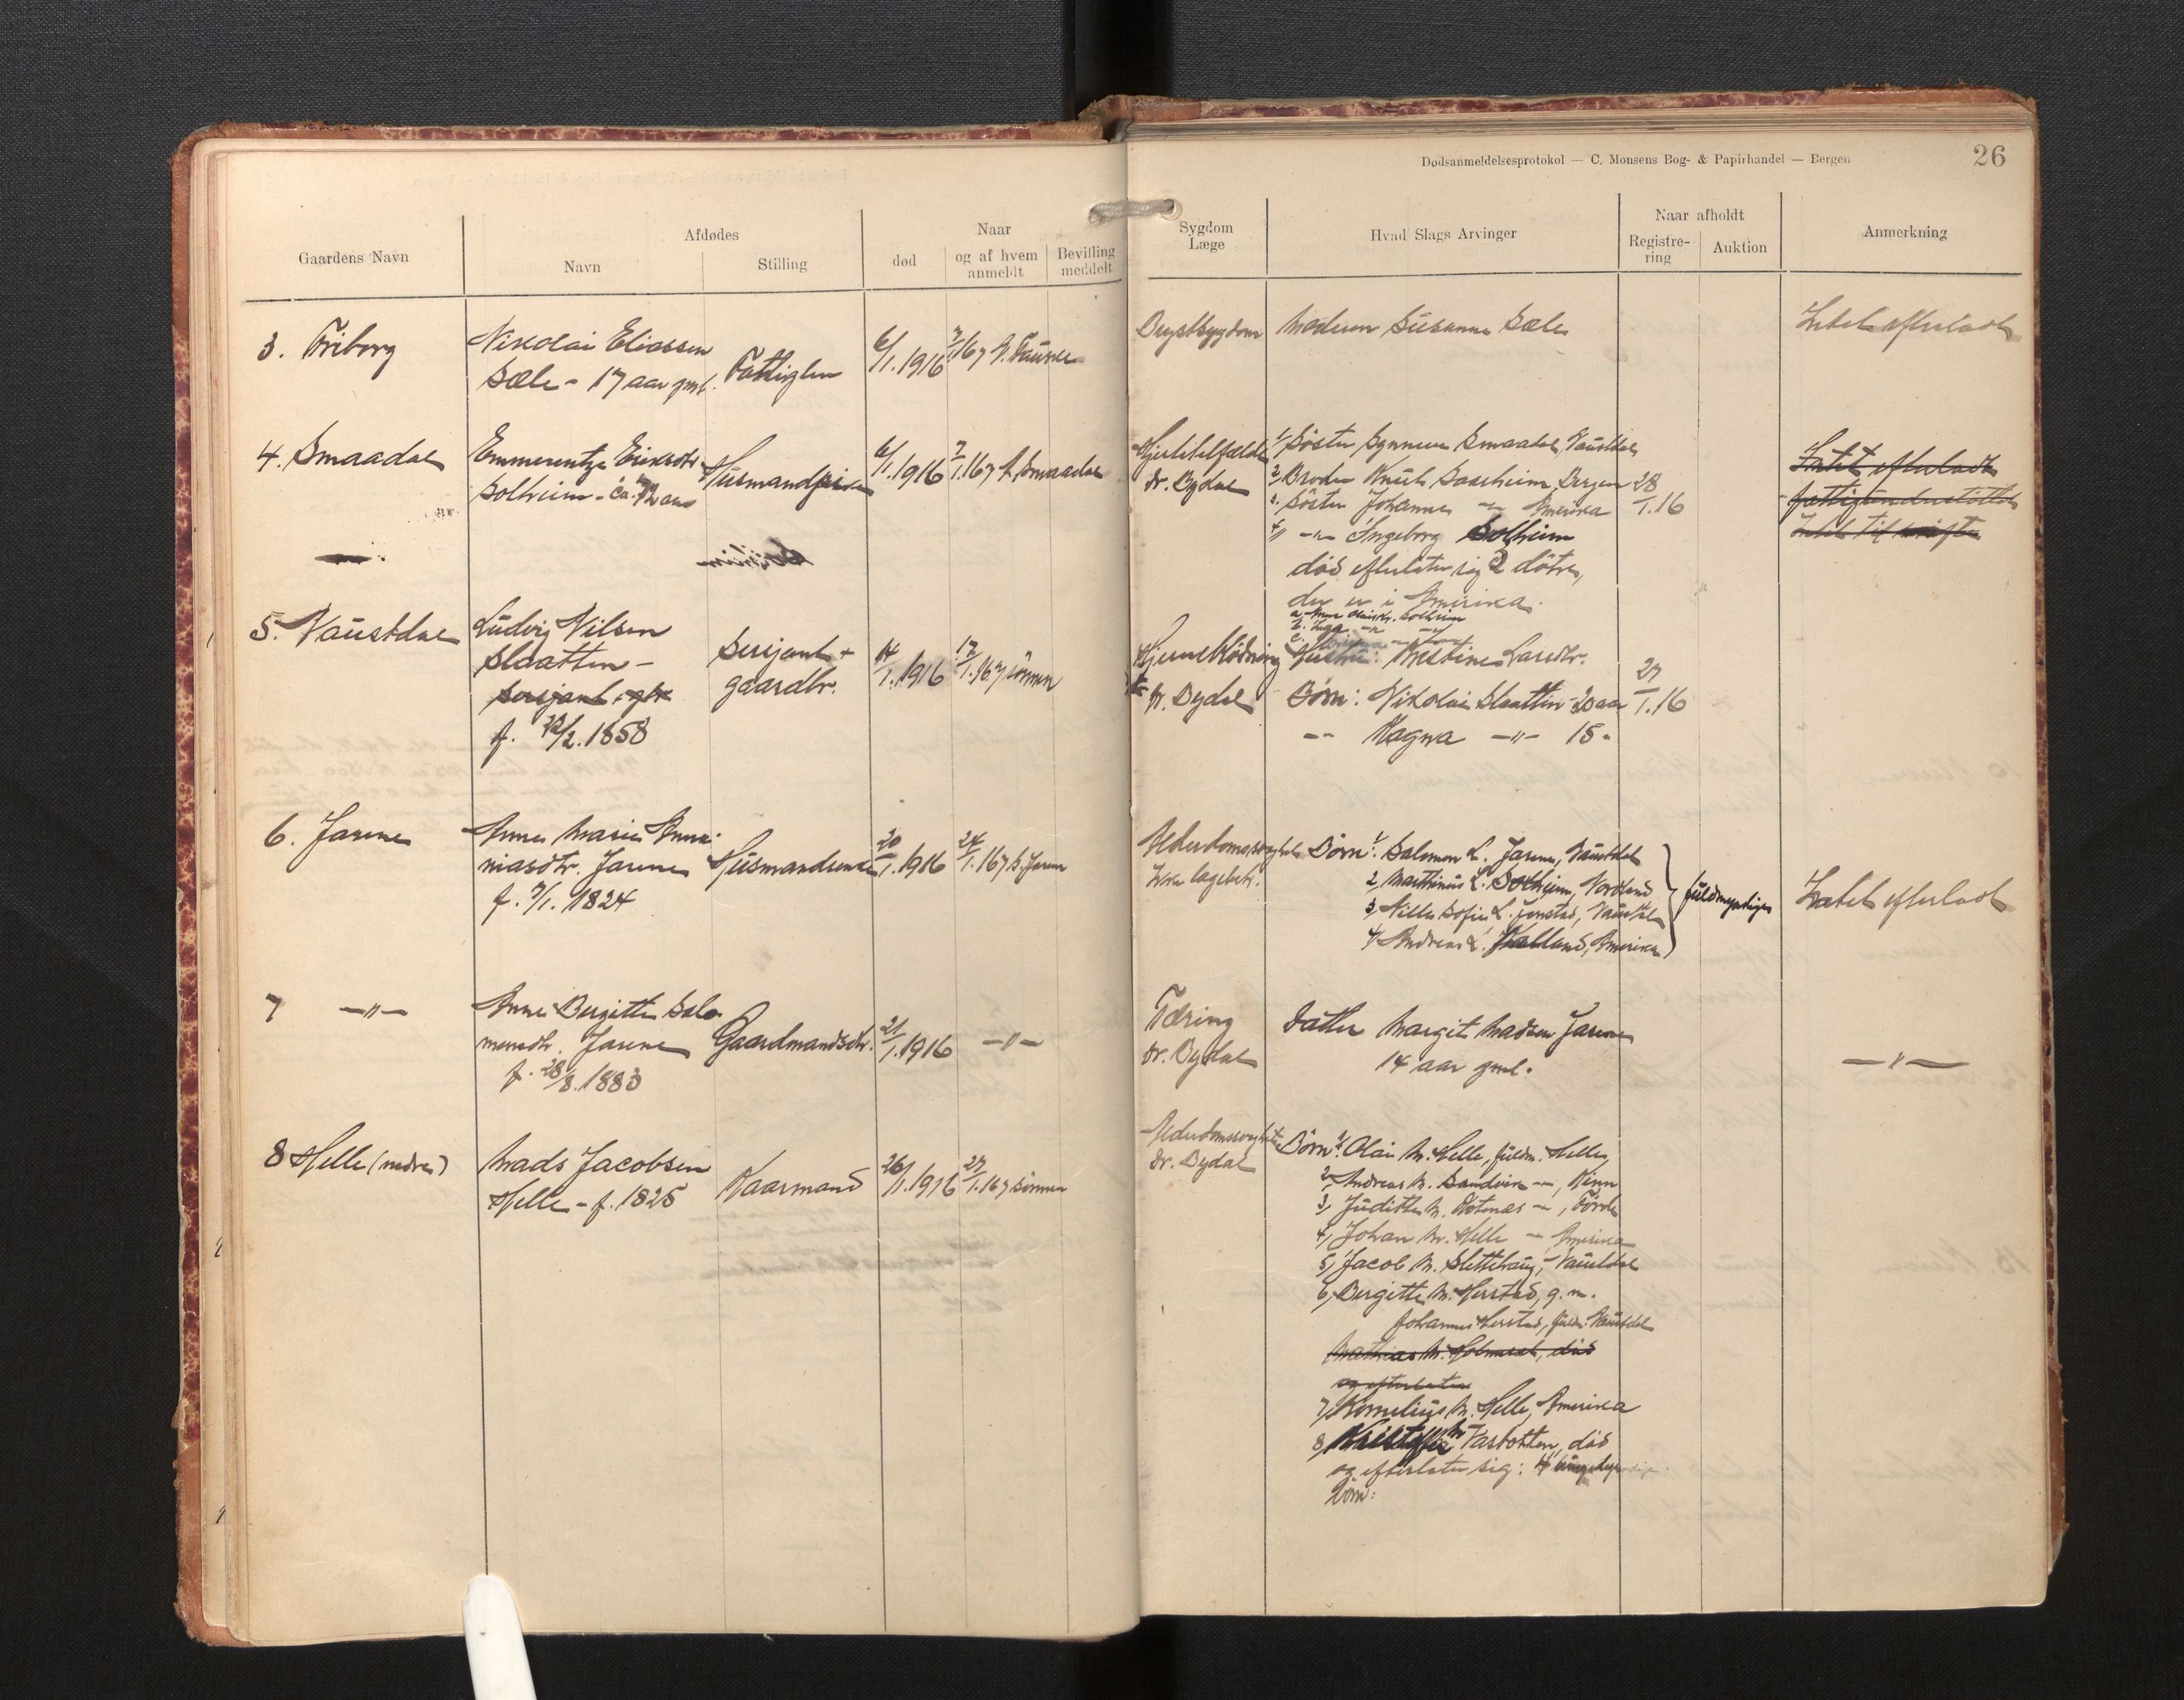 Dødsanmeldelsesprotokol — C. Monsens Bog- & Papirhandel — Bergen
26
Gaardens Navn
Afdødes
Navn
Stilling
Naar
død
og af hvem anmeldt
Bevilling meddelt
Sygdom
Læge
Hvad Slags Arvinger
Naar afholdt
Registre-
ring
Auktion
Anmerkning
3. Friborg
Nikolai Eliassen
Sæle - 17 aar gml.
Fattiglem
6/1.1916
7/1.16
Brystsygdom
Moderen Susanne Sæle
Intet efterladt
4. Smaadal
Emmerentze Eriksdtr.
Solheim - ca. 72 aar
6/1.1916
7/1.16 Smaadal
Hjertetilfælde
dr. Dydal
1/ Søster Synneve Smaadal, Naustdal
2, Broder Knut Saasheim Bergen
3. Søster Johanne -"- Amerika
4/, -"- Ingeborg Solheim
død efterlater sig 2 døtre,
der er i Amerika.
28/1.16
Intet efterladt
fattigunderstøttet
5. Naustdal
Ludvig Nilsen
Slaatten -
serjant
f. /2. 1858
Serjant +
gaardbr.
14/1.1916
17/1.16 sønnen
Hjerneblødning
dr. Dydal
Hustru: Kristine Larsdtr.
Børn: Nikolai Slaatten - 20 aar
-"- Magna -"- 15 "
27/1.16
6. Jarene
Anne Marie Anna-
niasdtr. Jarene
f. 7/1. 1824
Husmandsenke
20/1.1916
24/1.16 S. Jarene
Alderdomssvaghet
Ikke lægebeh.
Børn: 1/ Salomon L. Jarene, Naustdal
2, Matthinus L. Solheim, Nordland
3, Nille Sofie L. Jonstad, Naustdal
4/ Andreas L. Kalland, Amerika
fuldmyndige
Intet efterladt
7 -"-
Anne Bergitte Salo-
monsdtr. Jarene
f. 28/8. 1883
Gaardmandsdtr.
21/1.1916
-"-
Tæring
dr. Dydal
Datter Margit Madsen Jarene
14 aar gml.
-"-
8 Helle (nedre)
Mads Jacobsen
Helle - f. 1825
Kaarmand
26/1.1916
27/1.16 sønnen
Alderdomssvaghet
dr. Dydal
Børn: 1/ Olai M. Helle, fuldm. Helle,
2, Andreas M. Sandvik -"-, Kinn
3, Juditte M. -"-, Førde
4, Johan M. Helle -"- Amerika
5, Jacob M. Slettehaug, - Naustdal
6, Bergitte M. Herstad, g. m.
Johannes Herstad, fuldm. Naustdal
Mathias M. død
og efterlater
7, Kornelius M. Helle, Amerika
8, M. Vasbotten, død
og efterlater sig: 4
børn: